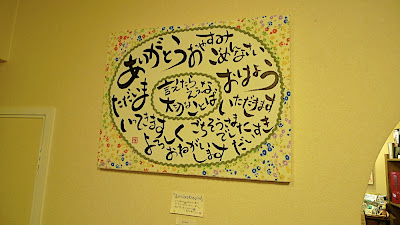 ありがとう おやすみ ごめんなさい
おはよう
ただいま
言えたらええな
大切なことば
いただきます
いってきます
ごちそうさまでした
だいすき
よろしくおねがいします